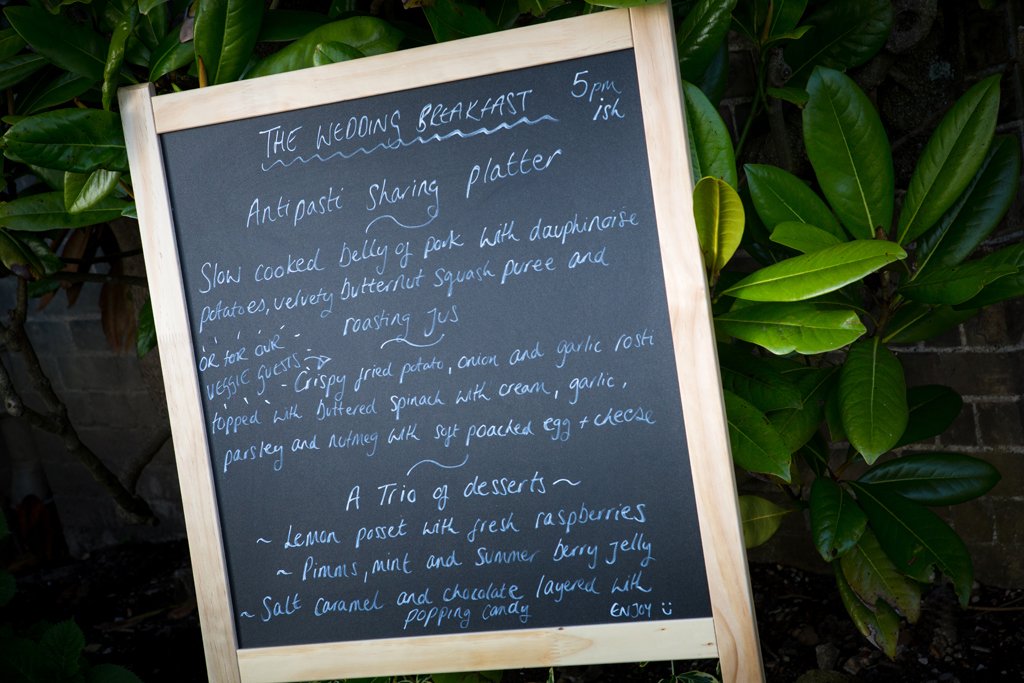 THE WEDDING BREAKFAST
5pm
ish
Antipasti sharing platter
Slow cooked belly of pork with dauphinoise
potatoes, velvety butternut squash puree and
roasting jus
OR FOR OUR
VEGGIE GUESTS
Crispy fried potato, onion and garlic rosti
topped with buttered spinach with cream, garlic,
parsley and nutmeg with soft poached egg + cheese
A Trio of desserts ~
~ Lemon posset with fresh raspberries
~ Pimms, mint and summer berry jelly
~ Salt caramel and chocolate layered with
popping candy
ENJOY